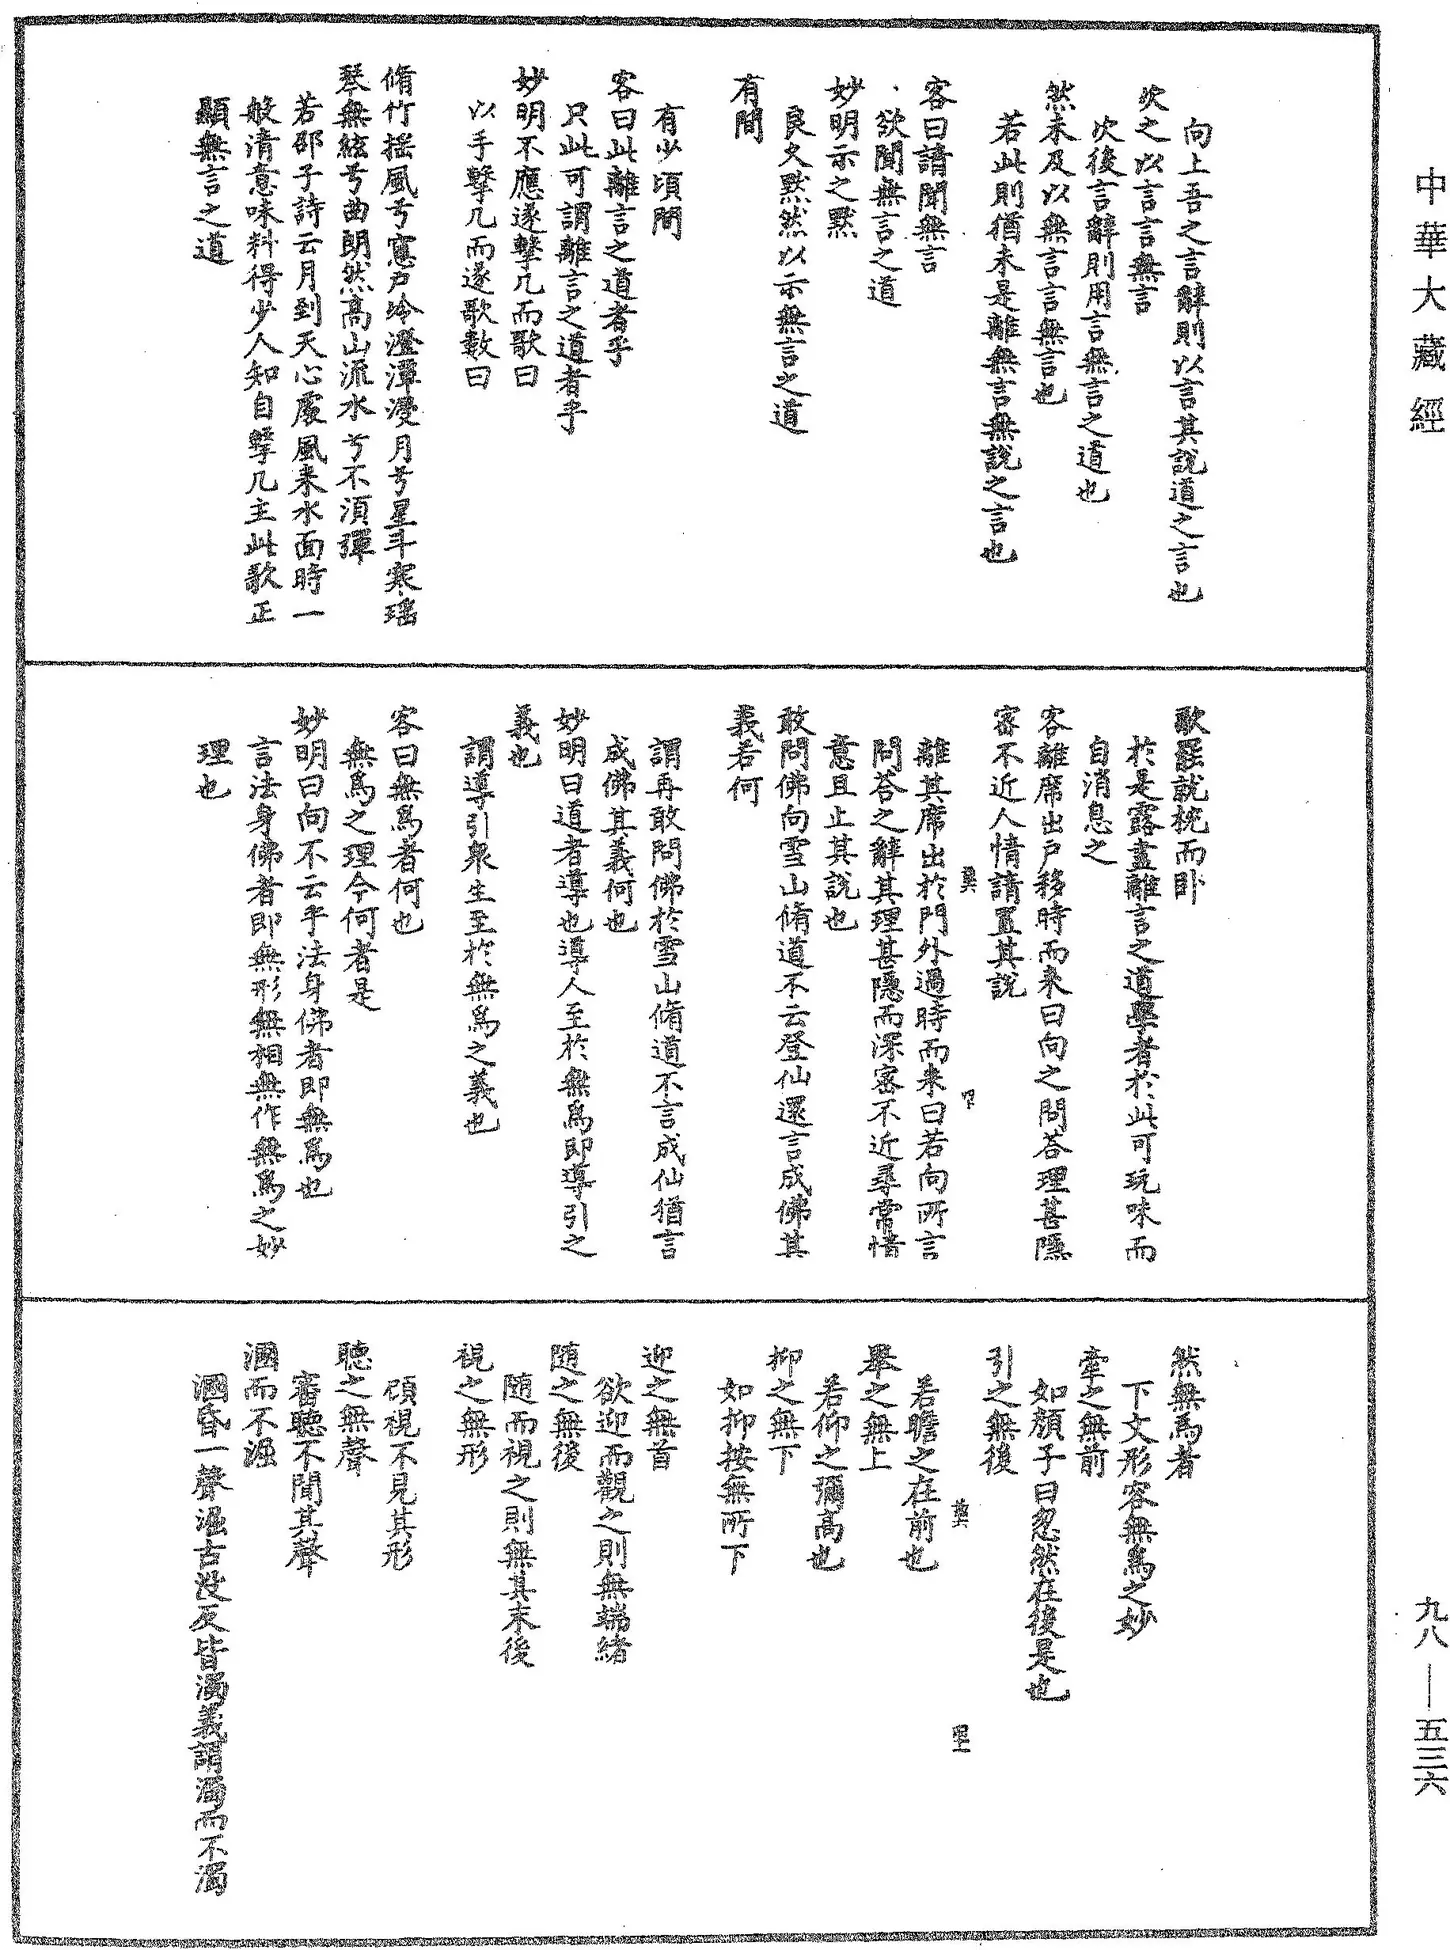 中華大藏經
向上吾之言辭則以言其說道之言也
次之以言言無言
次後言辭則用言無言之道也
然未及以無言言無言也
若此則猶未是離無言無說之言也
客曰請聞無言
欲聞無言之道
妙明示之默
良久默然以示無言之道
有間
有少頃間
客曰此離言之道者乎
只此可謂離言之道者乎
妙明不應遂擊几而歌曰
以手擊几而遂歌數曰
脩竹搖風兮窻戶冷澄潭浸月兮星斗寒瑤
琴無絃兮曲朗然高山流水兮不須彈
若邵子詩云月到天心處風来水面時一
般清意味料得少人知自擊几主此歌正
顯無言之道
歌罷說枕而卧
於是露盡離言之道學者於此可玩味而
自消息之
客離席出戶移時而来曰向之問荅理甚隱
密不近人情請置其說
離其席出於門外過時而来曰若向所言
問荅之辭其理甚隱而深密不近尋常情
意且止其說也
敢問佛向雪山脩道不云登仙還言成佛其
義若何
謂再敢問佛於雪山脩道不言成仙猶言
成佛其義何也
妙明曰道者導也導人至於無爲即導引之
義也
謂導引衆生至於無爲之義也
客曰無爲者何也
無爲之理今何者是
妙明曰向不云乎法身佛者即無爲也
言法身佛者即無形無相無作無爲之妙
理也
然無爲者
下文形容無爲之妙
牽之無前
如顏子曰忽然在後是也
引之無後
若瞻之在前也
舉之無上
若仰之彌高也
抑之無下
如抑按無所下
迎之無首
欲迎而觀之則無端緒
随之無後
随而視之則無其末後
視之無形
頎視不見其形
聽之無聲
審聽不聞其聲
溷而不淈
溷昏一聲淈古没反皆濁義謂濁而不濁
九八—五三六